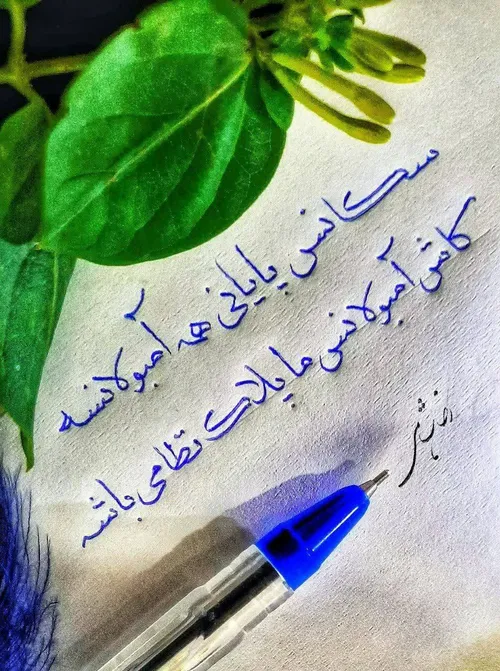 سکانس پایانی همه آمبولانسه
کاش آمبولانس ما پلاک نظامی باشه